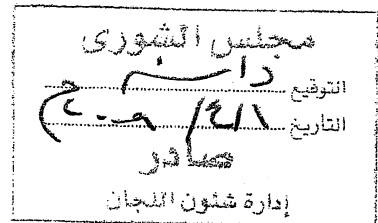 مجلس الشورى
التوقيع
التاريخ ١/٤/٢٠٠٩م
صادر
إدارة شئون اللجان